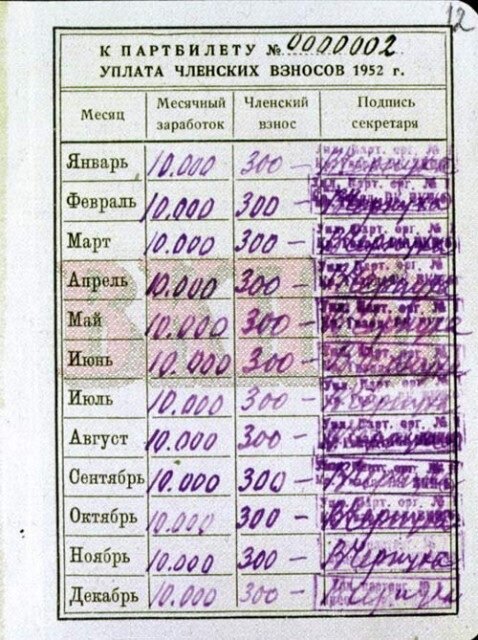 12
К ПАРТБИЛЕТУ № 0000002
УПЛАТА ЧЛЕНСКИХ ВЗНОСОВ 1952 г.
Месяц Месячный заработок Членский взнос Подпись секретаря
Январь 10.000 300 –
Февраль 10.000 300 –
Март 10.000 300 –
Апрель 10.000 300 –
Май 10.000 300 –
Июнь 10.000 300 –
Июль 10.000 300 –
Август 10.000 300 –
Сентябрь 10.000 300 –
Октябрь 10.000 300 –
Ноябрь 10.000 300 –
Декабрь 10.000 300 –